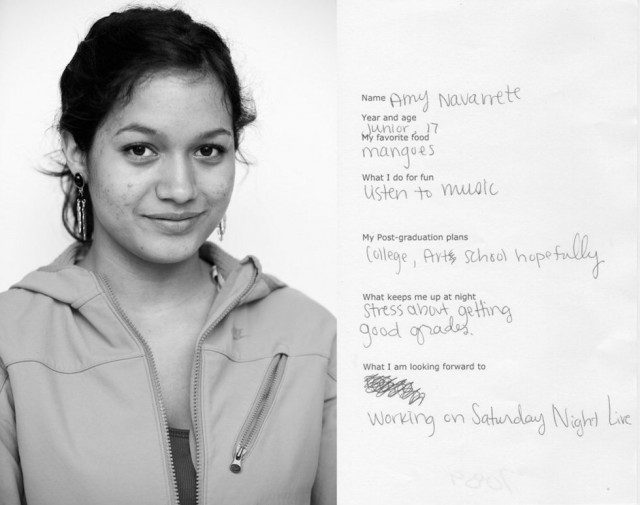 Name Amy Navarrete
Year and age
Junior, 17
My favorite food
mangoes
What I do for fun
Listen to music
My Post-graduation plans
College, Arts school hopefully
What keeps me up at night
Stress about getting
good grades.
What I am looking forward to
Working on Saturday Night Live